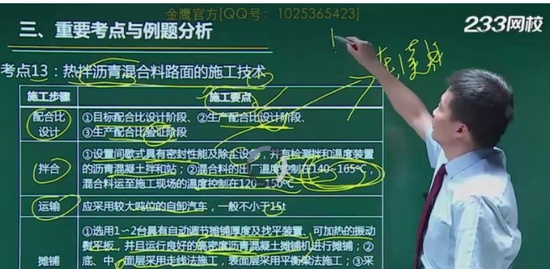 金鹰官方[QQ号：1025365423]
233网校
三、重要考点与例题分析
考点13：热拌沥青混合料路面的施工技术
施工步骤 施工要点
配合比设计 ①目标配合比设计阶段、②生产配合比设计阶段、
③生产配合比验证阶段
拌合 ①设置间歇式具有密封性能及除尘设备，并有检测拌和温度装置
的沥青混凝土拌和站；②混合料的出厂温度控制在140~165℃，
混合料运至施工现场的温度控制在120~150℃
运输 应采用较大吨位的自卸汽车，一般不小于15t
摊铺 ①选用1~2台具有自动调节摊铺厚度及找平装置、可加热的振动
熨平板，并且运行良好的高密度沥青混凝土摊铺机进行摊铺；②
底、中、面层采用走线法施工，表面层采用平衡梁法施工；③采